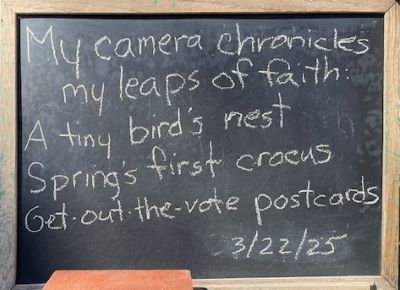 My camera chronicles
my leaps of faith:
A tiny bird's nest
Spring's first crocus
Get-out-the-vote postcards
3/22/25